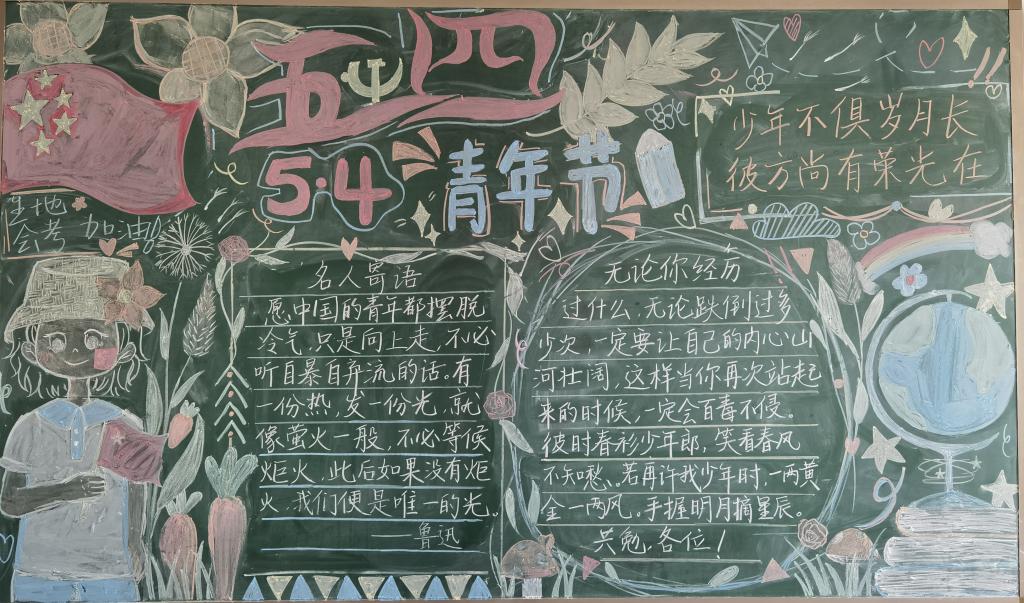 五四
5·4 青年节
少年不惧岁月长
彼方尚有荣光在
生地
会考 加油!!
名人寄语
愿中国的青年都摆脱
冷气,只是向上走,不必
听自暴自弃流的话。有
一份热,发一份光,就
像萤火一般,不必等候
炬火,此后如果没有炬
火,我们便是唯一的光。
——鲁迅
无论你经历
过什么,无论跌倒过多
少次,一定要让自己的内心山
河壮阔,这样当你再次站起
来的时候,一定会百毒不侵。
彼时春衫少年郎,笑看春风
不知愁,若再许我少年时,一两黄
金一两风。手握明月摘星辰。
共勉,各位!